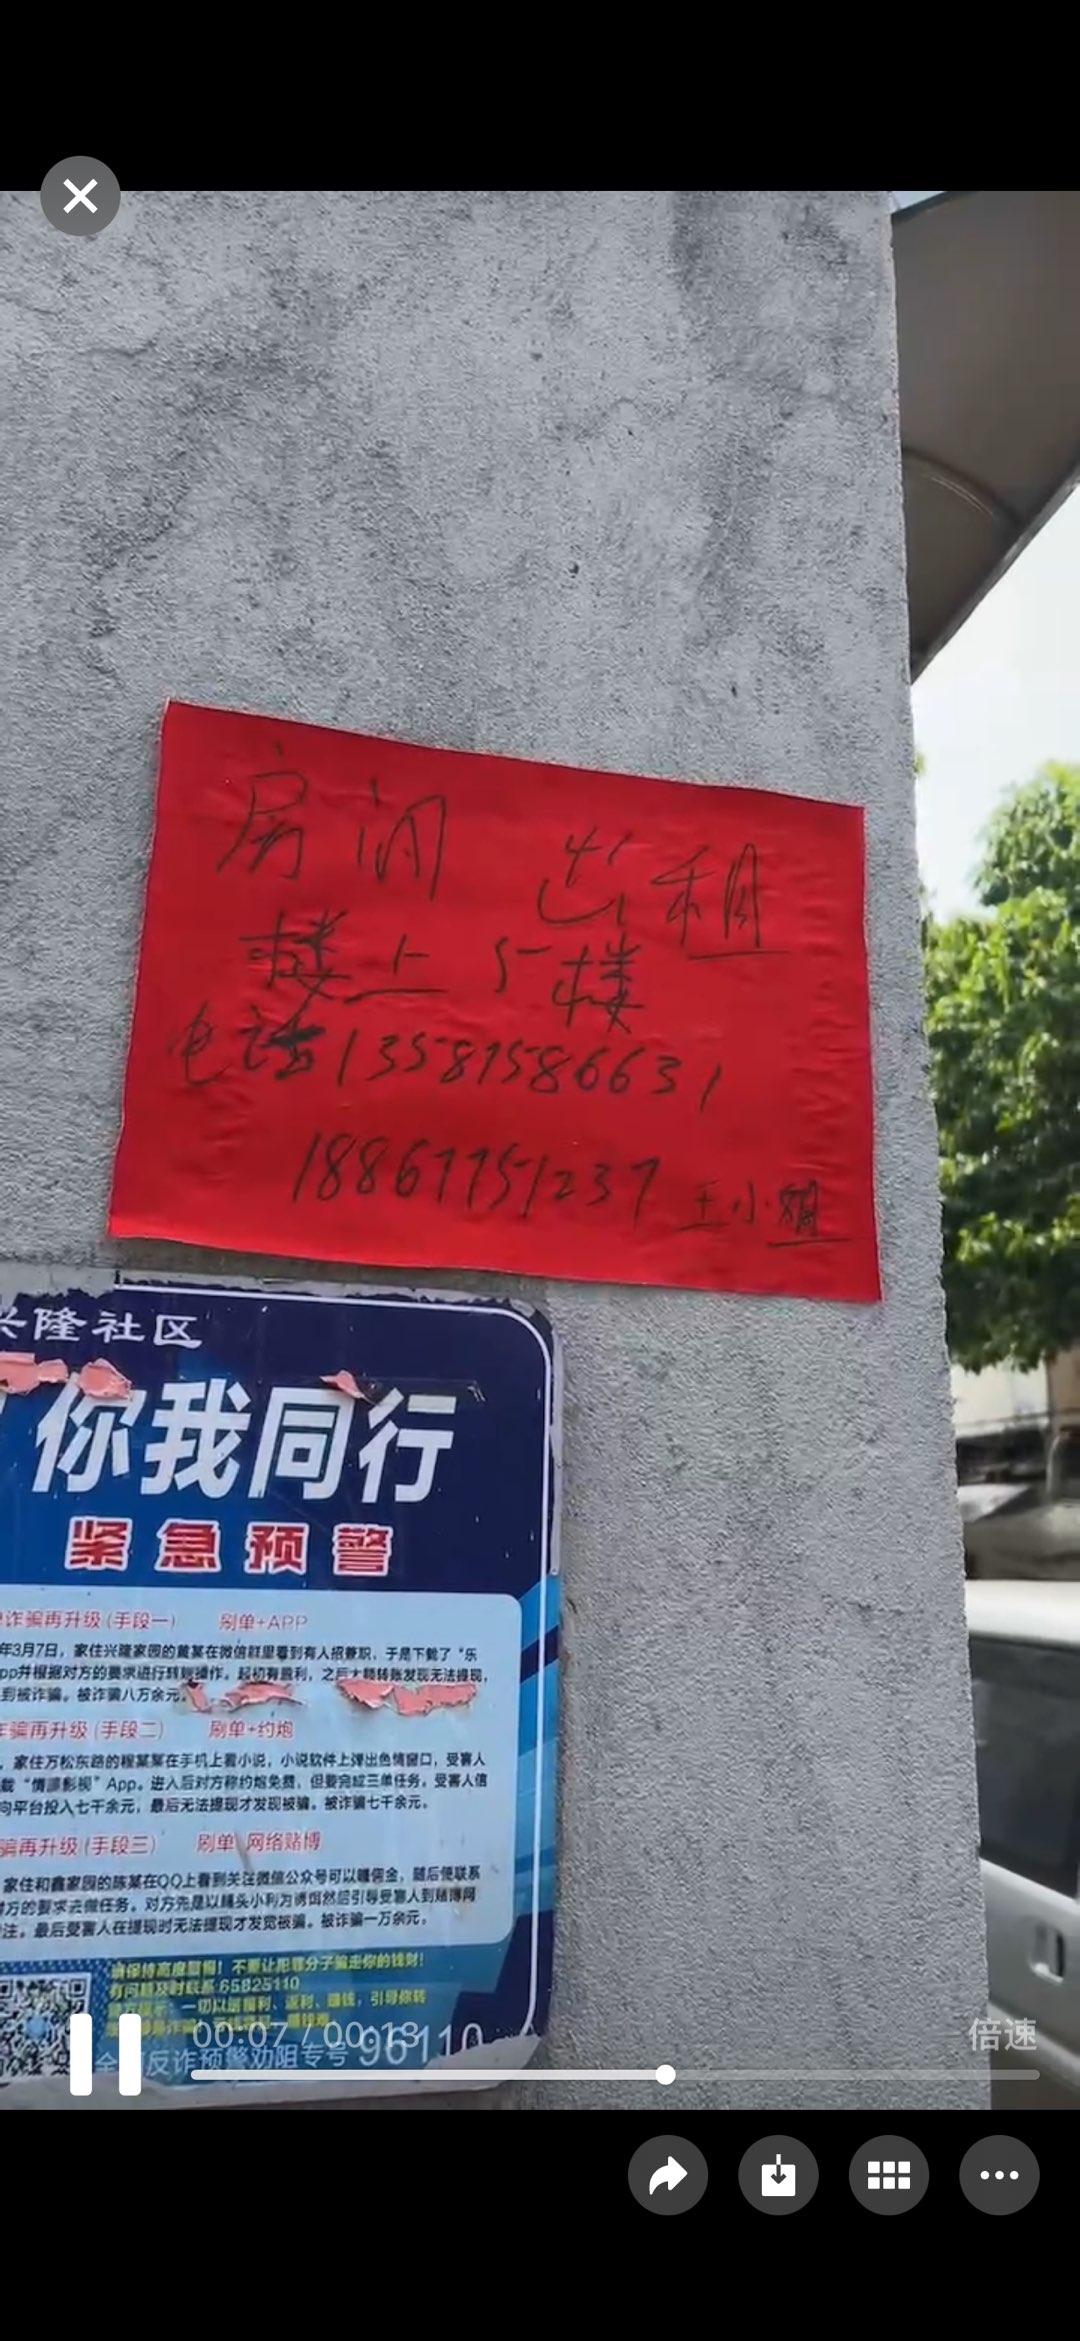 房间 出租
楼上5楼
电话13587586631
18867751237 王小姐
兴隆社区
你我同行
紧急预警
诈骗再升级(手段一) 刷单+APP
年3月7日，家住兴隆家园的黄某在微信群里看到有人招兼职，于是下载了“乐
pp并根据对方的要求进行转账操作。起初有盈利，之后大额转账发现无法提现，
到被诈骗。被诈骗八万余元。
诈骗再升级(手段二) 刷单+约炮
，家住万松东路的程某某在手机上看小说，小说软件上弹出色情窗口，受害人
载“情谊影视”App。进入后对方称约炮免费，但要完成三单任务，受害人信
向平台投入七千余元，最后无法提现才发现被骗。被诈骗七千余元。
骗再升级(手段三) 刷单 网络赌博
家住和鑫家园的陈某在QQ上看到关注微信公众号可以赚佣金，随后便联系
对方的要求去做任务。对方先是以甜头小利为诱饵然后引导受害人到赌博网
注。最后受害人在提现时无法提现才发觉被骗。被诈骗一万余元。
请保持高度警惕！不要让犯罪分子骗走你的钱财！
有问题及时联系 65825110
一切以刷单、返利、赚钱，引导你转
00:07 / 00:13
倍速
反诈预警劝阻专号 96110